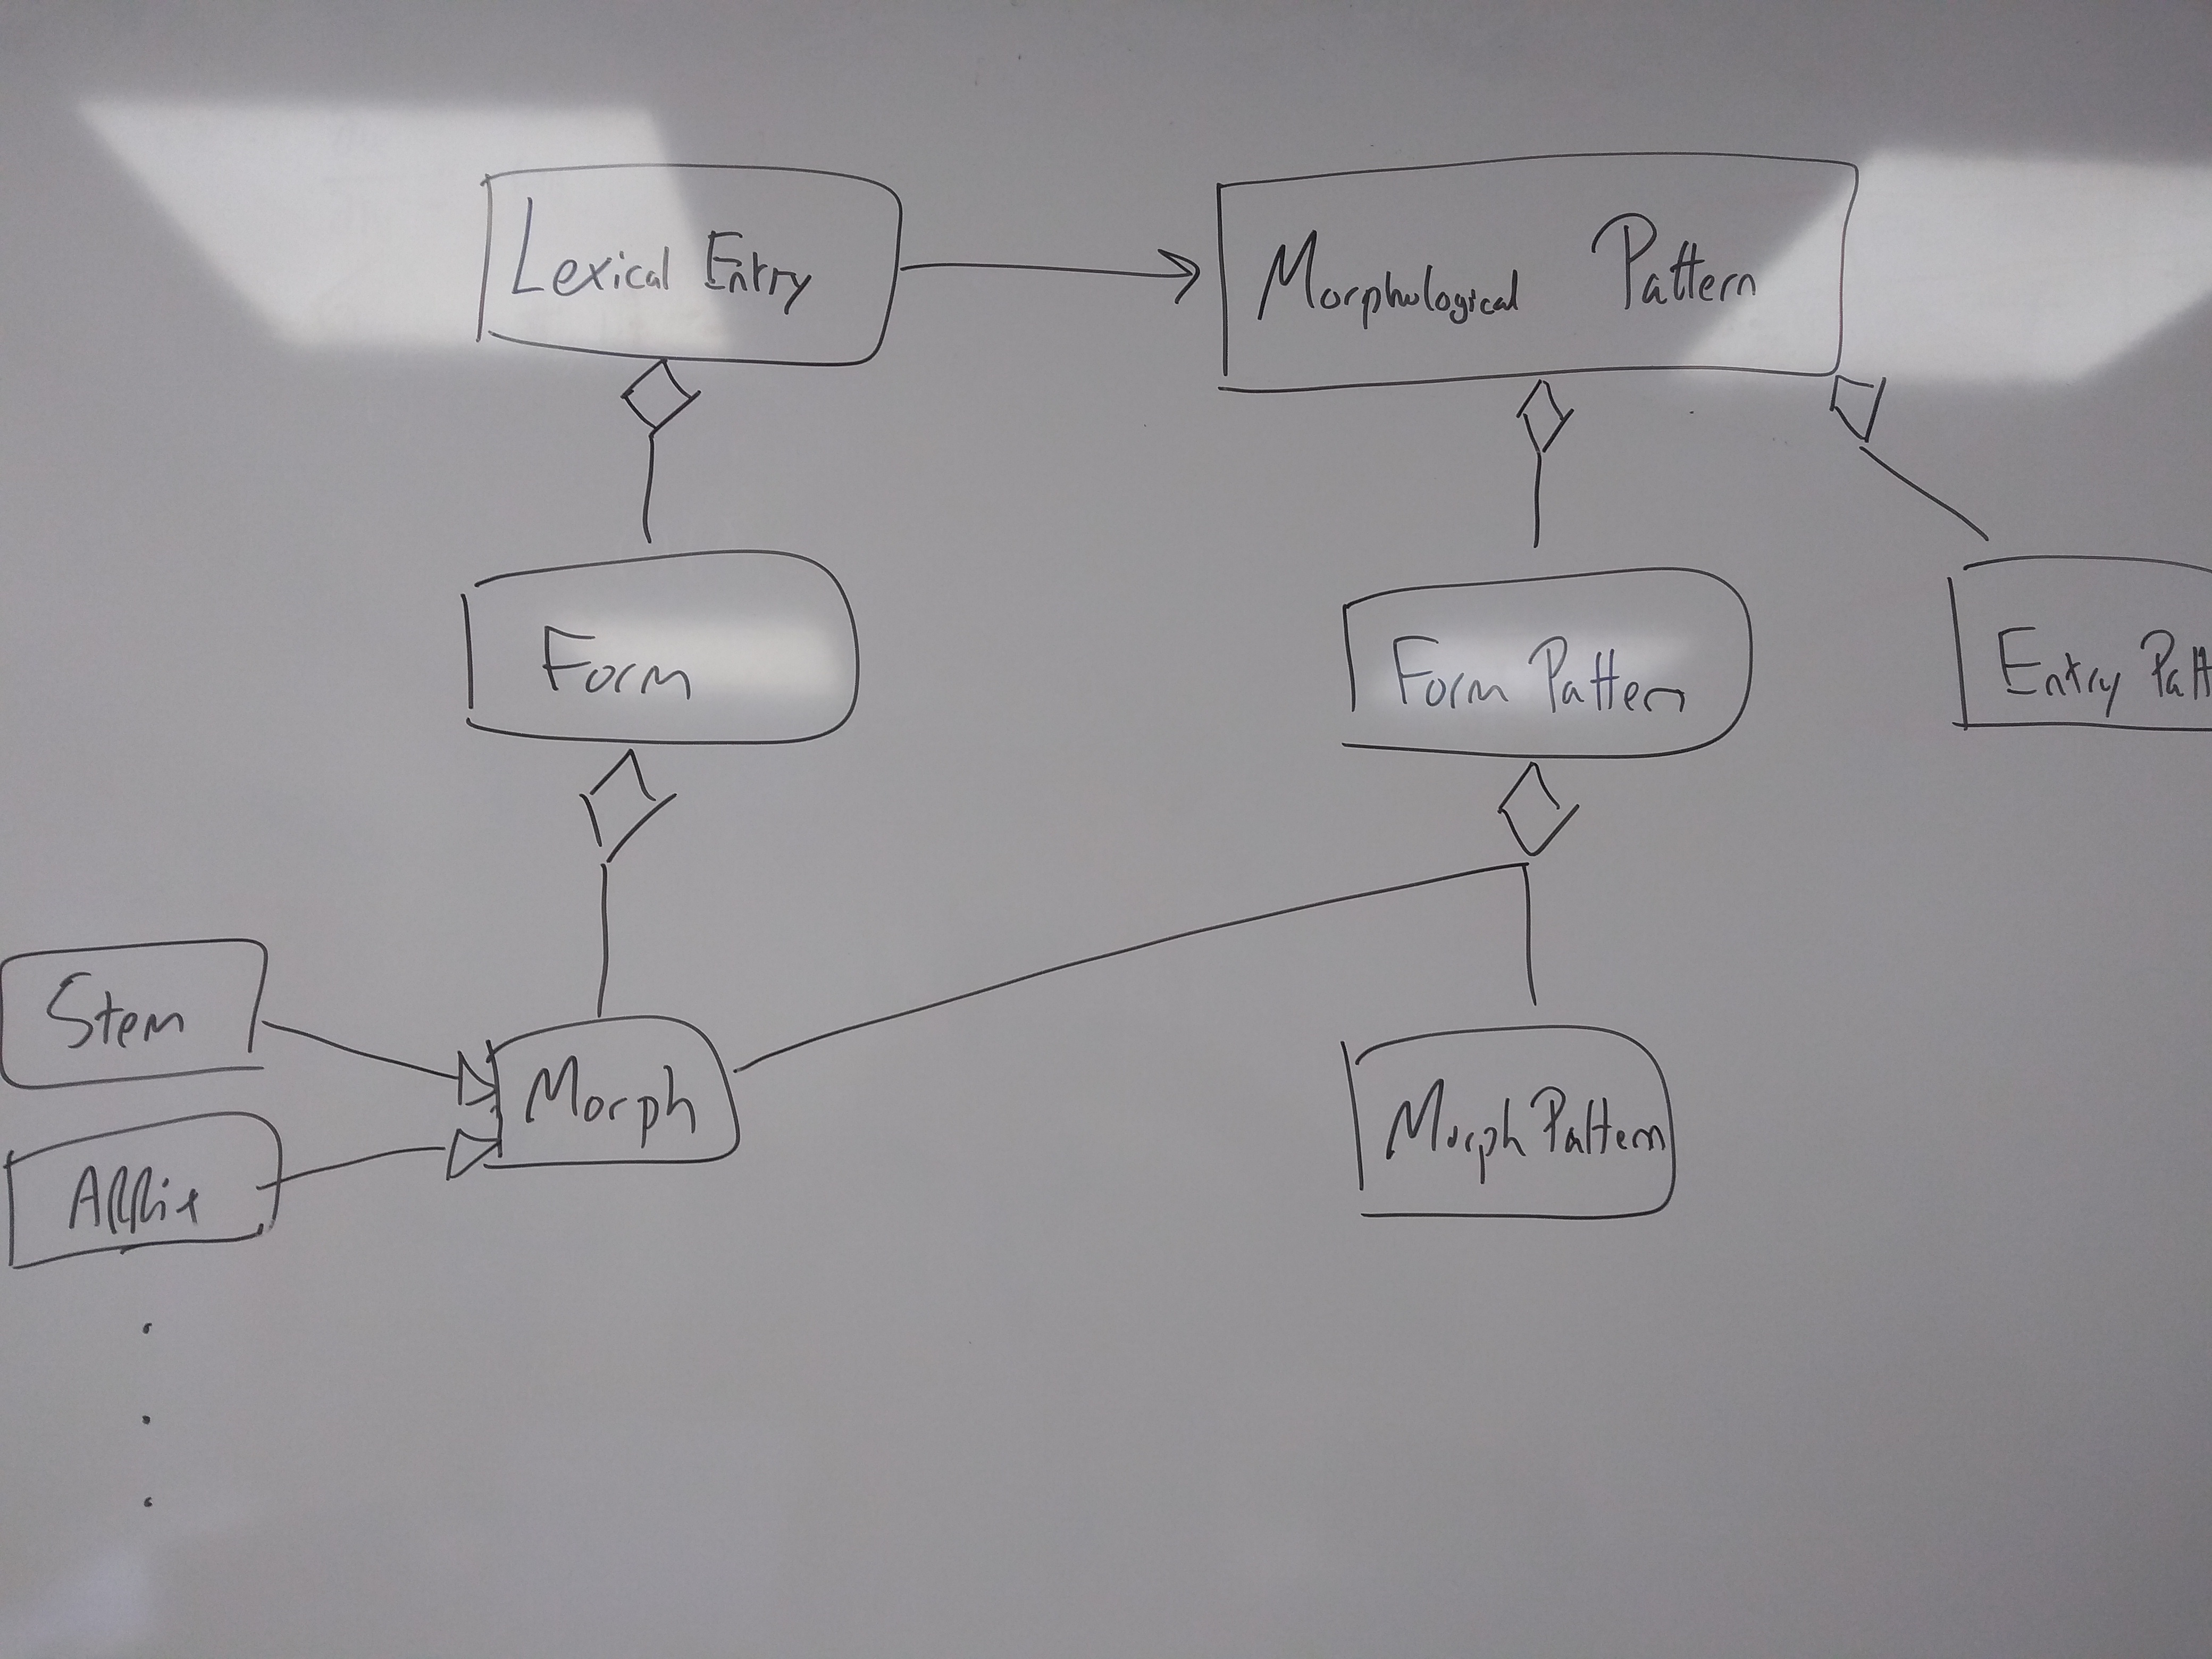 Lexical Entry
Morphological Pattern
Form
Form Pattern
Entry Patt
Stem
Morph
Morph Pattern
Affix